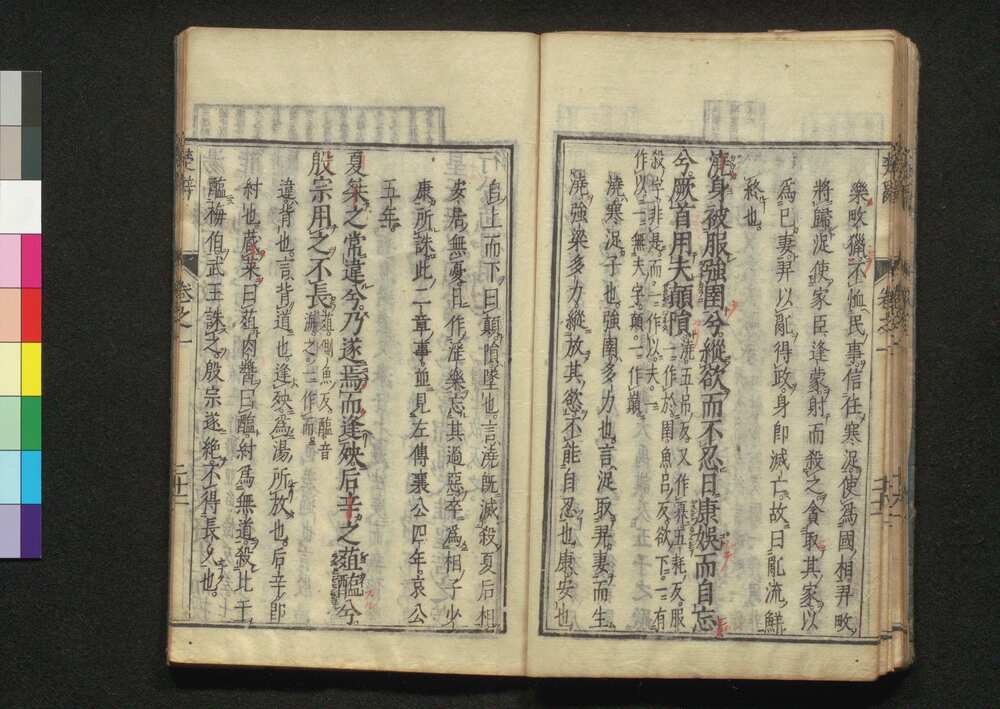 樂畋獵不恤民事信任寒浞使爲國相羿畋
將歸浞使家臣逢蒙射而殺之貪取其家以
爲己妻羿以亂得政身卽滅亡故曰亂流鮮
終也
澆身被服強圉兮縱欲而不忍日康娛而自忘
兮厥首用夫顚隕
澆五吊反又作奡五耗反服
一作於圉魚呂反欲下一有
殺字非是而一作以夫
作以一無夫字顚一作巓
澆寒浞子也強圉多力也言浞取羿妻而生
澆強梁多力縱放其慾不能自忍也康安也
自上而下曰顚隕墜也言澆旣滅殺夏后相
安居無憂日作淫樂忘其過惡卒爲相子少
康所誅此二章事並見左傳襄公四年哀公
五年
夏桀之常違兮乃遂焉而逢殃后辛之菹醢兮
殷宗用之不長
菹側魚反醢音
海之一作而
違背也言背道也逢殃爲湯所放也后辛卽
紂也藏菜曰菹肉醬曰醢紂爲無道殺比干
醢梅伯武王誅之殷宗遂絶不得長久也
楚辭
卷之一
二十二